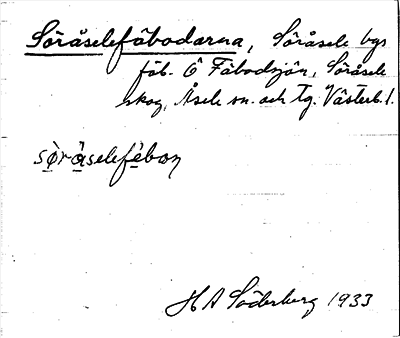 Söråselefäbodarna, Söråsele bys
fäb. Ö Fäbodsjön, Söråsele
skog, Åsele sn. och tg. Västerb. l.
söråselefèbon
H A Söderberg 1933